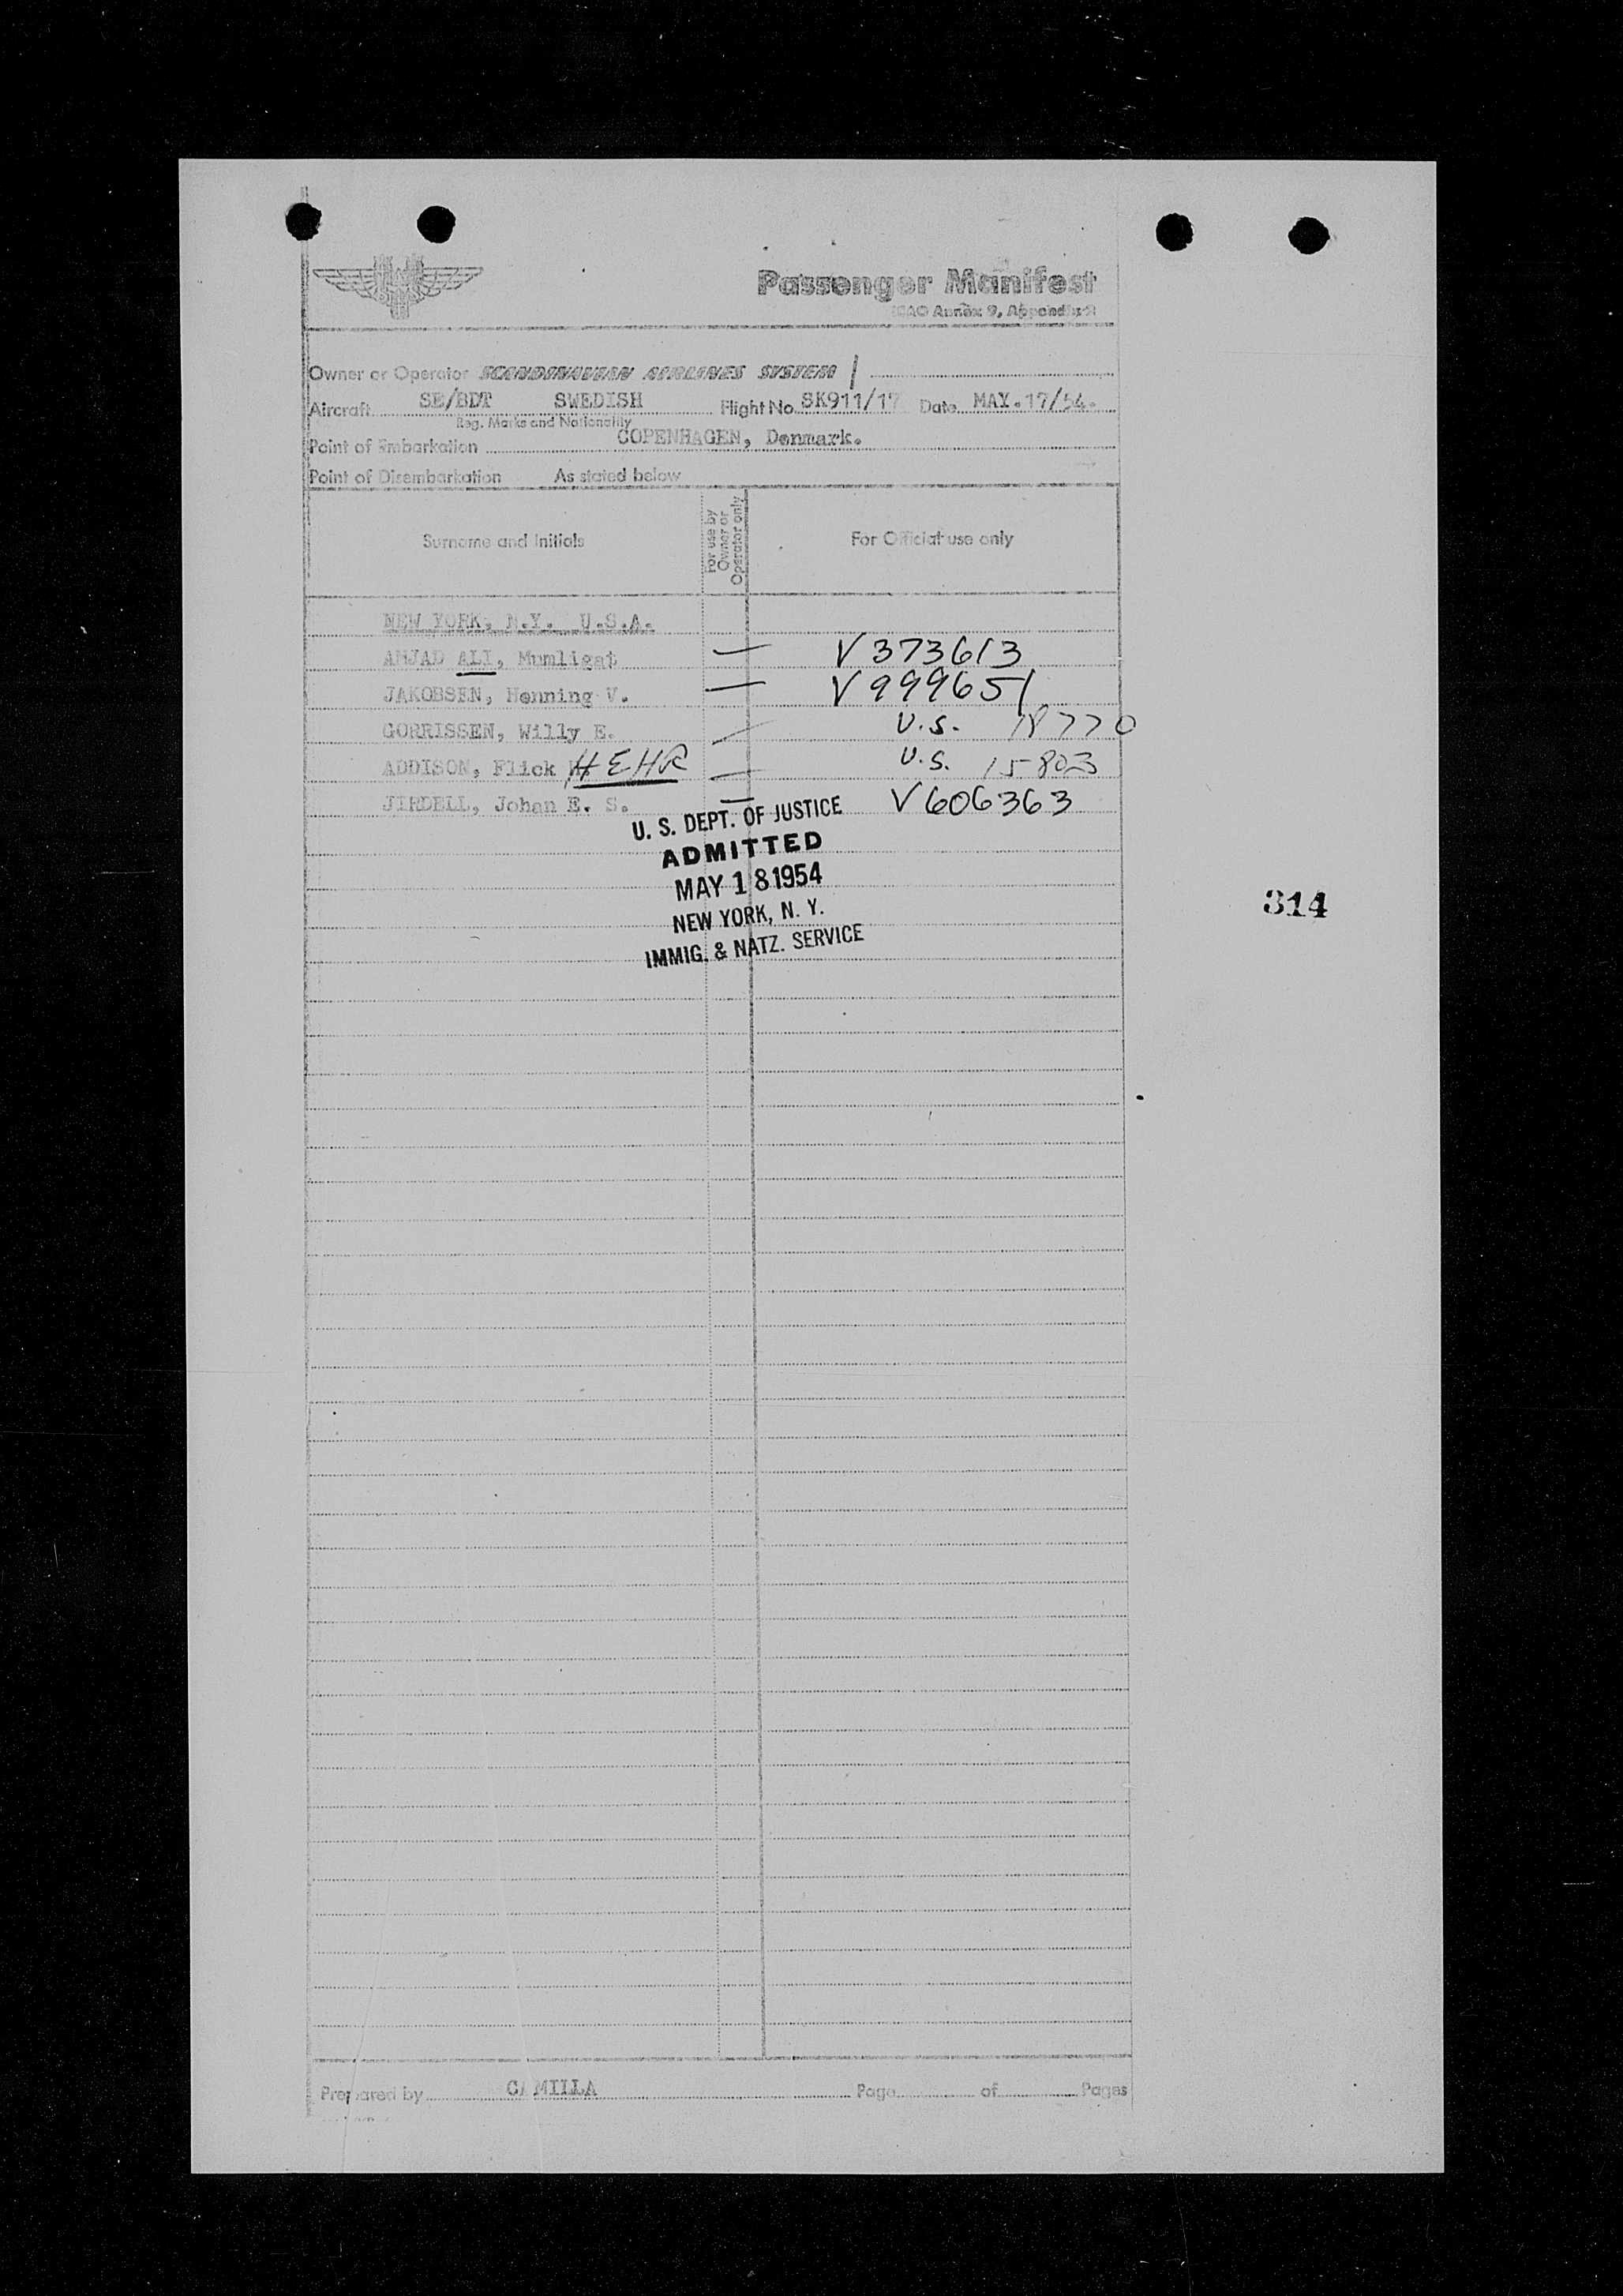 Passenger Manifest
ICAO Annex 9, Appendix 2
Owner or Operator SCANDINAVIAN AIRLINES SYSTEM
Aircraft SE/BDT SWEDISH Flight No. SK911/17 Date MAY.17/54.
Reg. Marks and Nationality
Point of Embarkation COPENHAGEN, Denmark.
Point of Disembarkation As stated below
Surname and Initials For use by Owner or Operator only For Official use only
NEW YORK, N.Y. U.S.A.
AMJAD ALI, Mumligat — V373613
JAKOBSEN, Henning V. — V999651
GORRISSEN, Willy E. — U.S. 18770
ADDISON, Flick HEHR — U.S. 15803
JIRDELL, Johan E. S. — V606363
U. S. DEPT. OF JUSTICE
ADMITTED
MAY 18 1954
NEW YORK, N. Y.
IMMIG. & NATZ. SERVICE
314
Prepared by CAMILLA Page of Pages